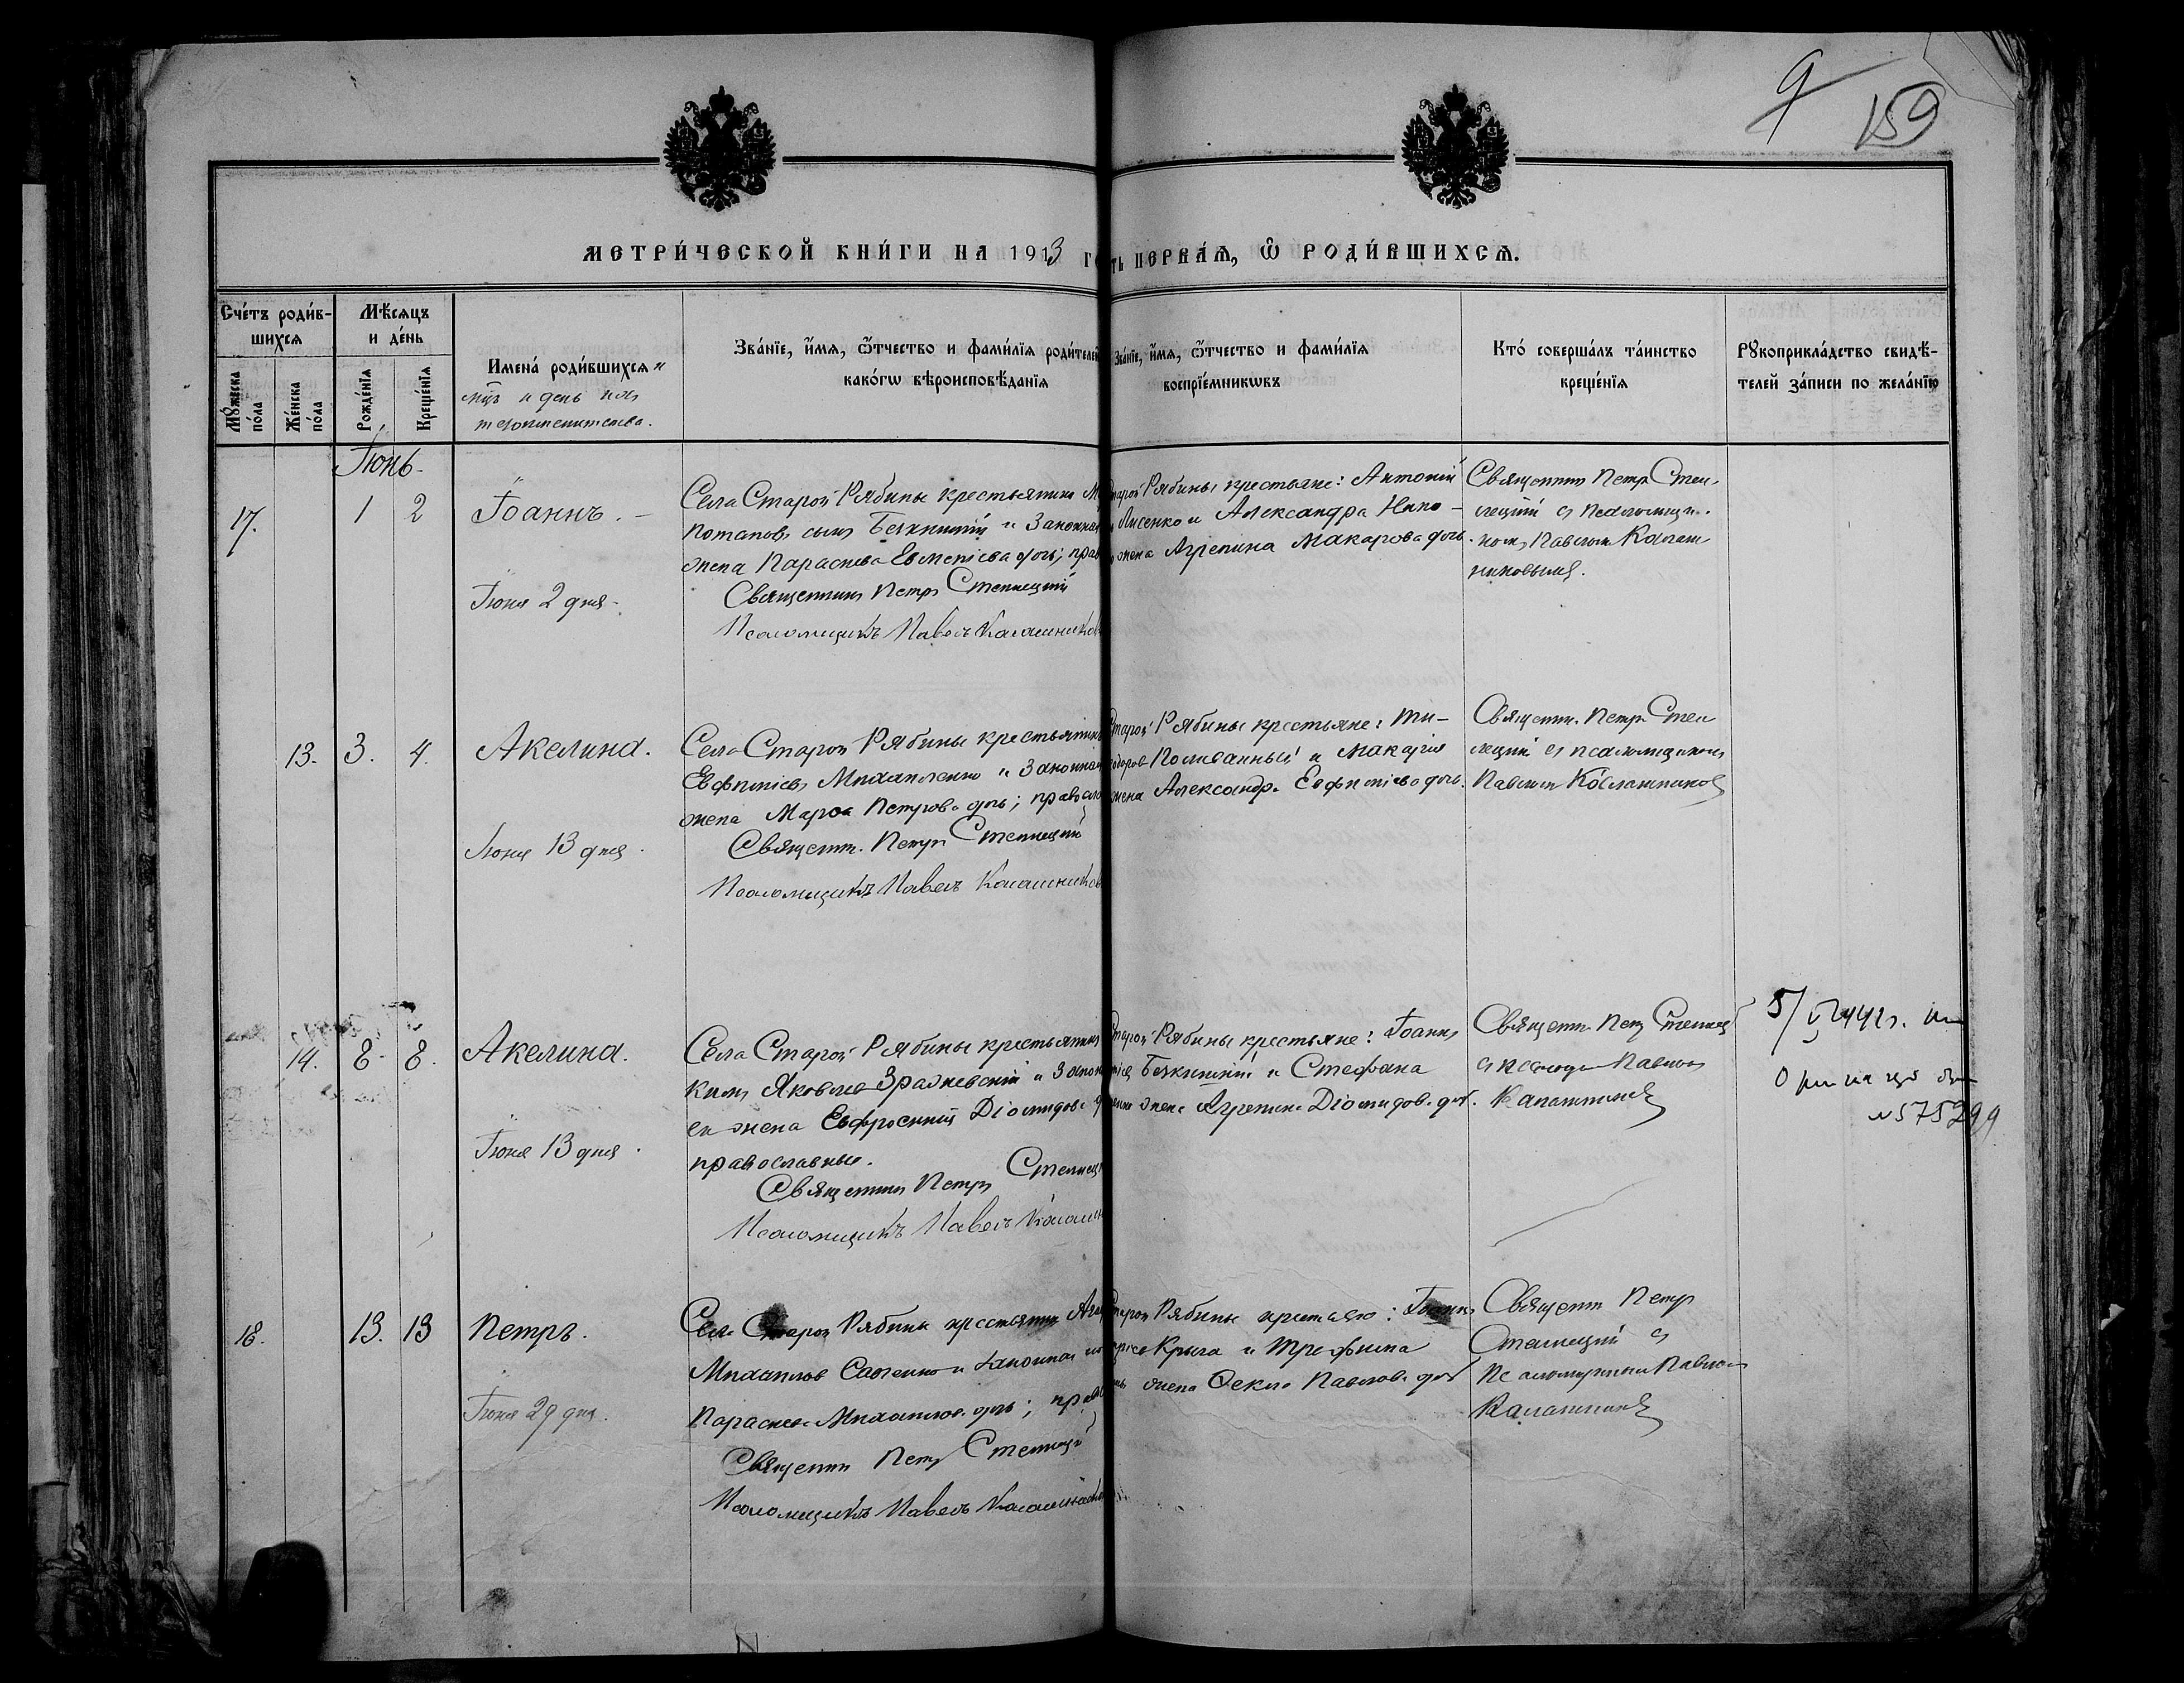 9
159
МЕТРИ́ЧЕСКОЙ КНИ́ГИ НА 1913 Г
ТЬ ПЕРВА́Я, Ѽ РОДИ́ВШИХСѦ.
Сче́тъ роди́в-
шихсѧ
Мѣ́сѧцъ
и де́нь
Мꙋ́жеска
по́ла
Же́нска
по́ла
Рожде́нїѧ
Креще́нїѧ
Имена́ роди́вшихсѧ и
мѣц и день ихъ
тезоименитства.
Зва́нїе, и҆́мѧ, ѻ҆́тчество и фами́лїѧ роди́телей
како́гѡ вѣроисповѣ́данїѧ
Зва́нїе, и҆́мѧ, ѻ҆́тчество и фами́лїѧ
воспрїе́мникѡвъ
Кто́ соверша́лъ та́инство
креще́нїѧ
Рꙋкоприкла́дство свидѣ́-
телей за́писи по жела́нїю
Іюнь
17.
1
2
Іоаннъ.
Іюня 2 дня
Села Старой Рябины крестьянинъ М
Потаповъ сынъ и законная
жена Параскева Евменіева дочь; прав
Священникъ Петръ Степлецкій
Псаломщикъ Павелъ Калашников
тарой Рябины крестьяне: Антоній
Лисенко и Александра Нико-
жена Агрепина Макарова дочь.
Священникъ Петръ Степ-
лецкій съ псаломщи-
комъ Павломъ Калаш
никовымъ.
13.
3.
4.
Акелина.
Іюня 13 дня.
Села Старой Рябины крестьянинъ
Евфиміевъ Михайленко и законная
жена Марѳа Петрова дочь; правосла
Священн. Петръ Степлецкій
Псаломщикъ Павелъ Калашников
Старой Рябины крестьяне: Ти-
Поливанный и Макарія
жена Александра Евфиміева дочь.
Священн. Петръ Степ
лецкій съ псаломщикомъ
Павломъ Калашников
14.
8.
8.
Акелина.
Іюня 13 дня.
Села Старой Рябины крестьянинъ
Яковлев и закон
ея жена Евфросинія Діомидова
православные.
Священникъ Петръ Степлец
Псаломщикъ Павелъ Калашн
Старой Рябины крестьяне: Іоаннъ
и Стефана
жена Агрепина Діомидова доч.
Священн Петр Степлец
съ псаломщ Павлом
Калашников
5/V 1944г.
№575299
18.
13.
13
Петръ.
Іюня 29 дня.
Села Старой Рябины крестьянин
Михаилов и законная
Параскева Михаилов. дочь; прав
Священник Петр Степлецкій
Псаломщикъ Павелъ Калашников
Старой Рябины крестьяне: Іоаннъ
Крыга и Трофима
жена Ѳекла Павлова доч
Священн Петр
Степлецкій съ
Псаломщиком Павлом
Калашников